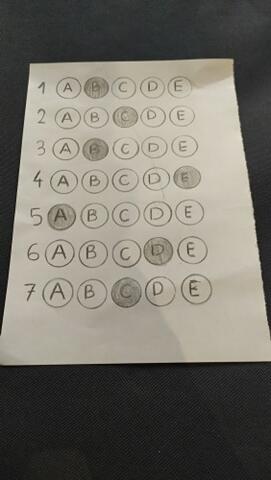 1 A B C D E
2 A B C D E
3 A B C D E
4 A B C D E
5 A B C D E
6 A B C D E
7 A B C D E